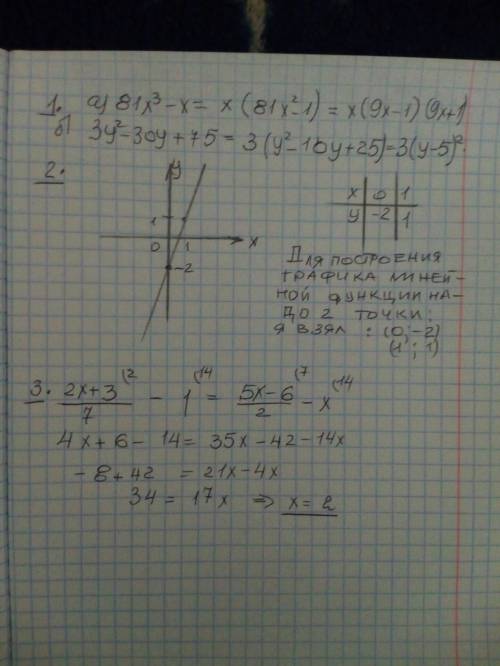 1. а) 81x³ - x = x(81x² - 1) = x(9x-1)(9x+1)
б) 3y² - 30y + 75 = 3(y² - 10y + 25) = 3(y-5)².
2.
y
1
0 1 x
-2
x | 0 | 1
y | -2 | 1
Для построения
графика линей-
ной функции на-
до 2 точки:
я взял : (0;-2)
(1; 1)
3. (2x+3)/7 (2 - 1 (14 = (5x-6)/2 (7 - x (14
4x + 6 - 14 = 35x - 42 - 14x
-8 + 42 = 21x - 4x
34 = 17x ⇒ x = 2